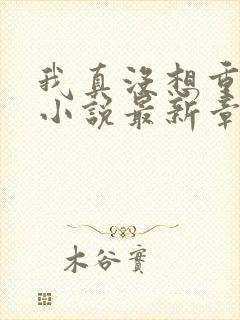 我真没想重
小说最新章
木谷實